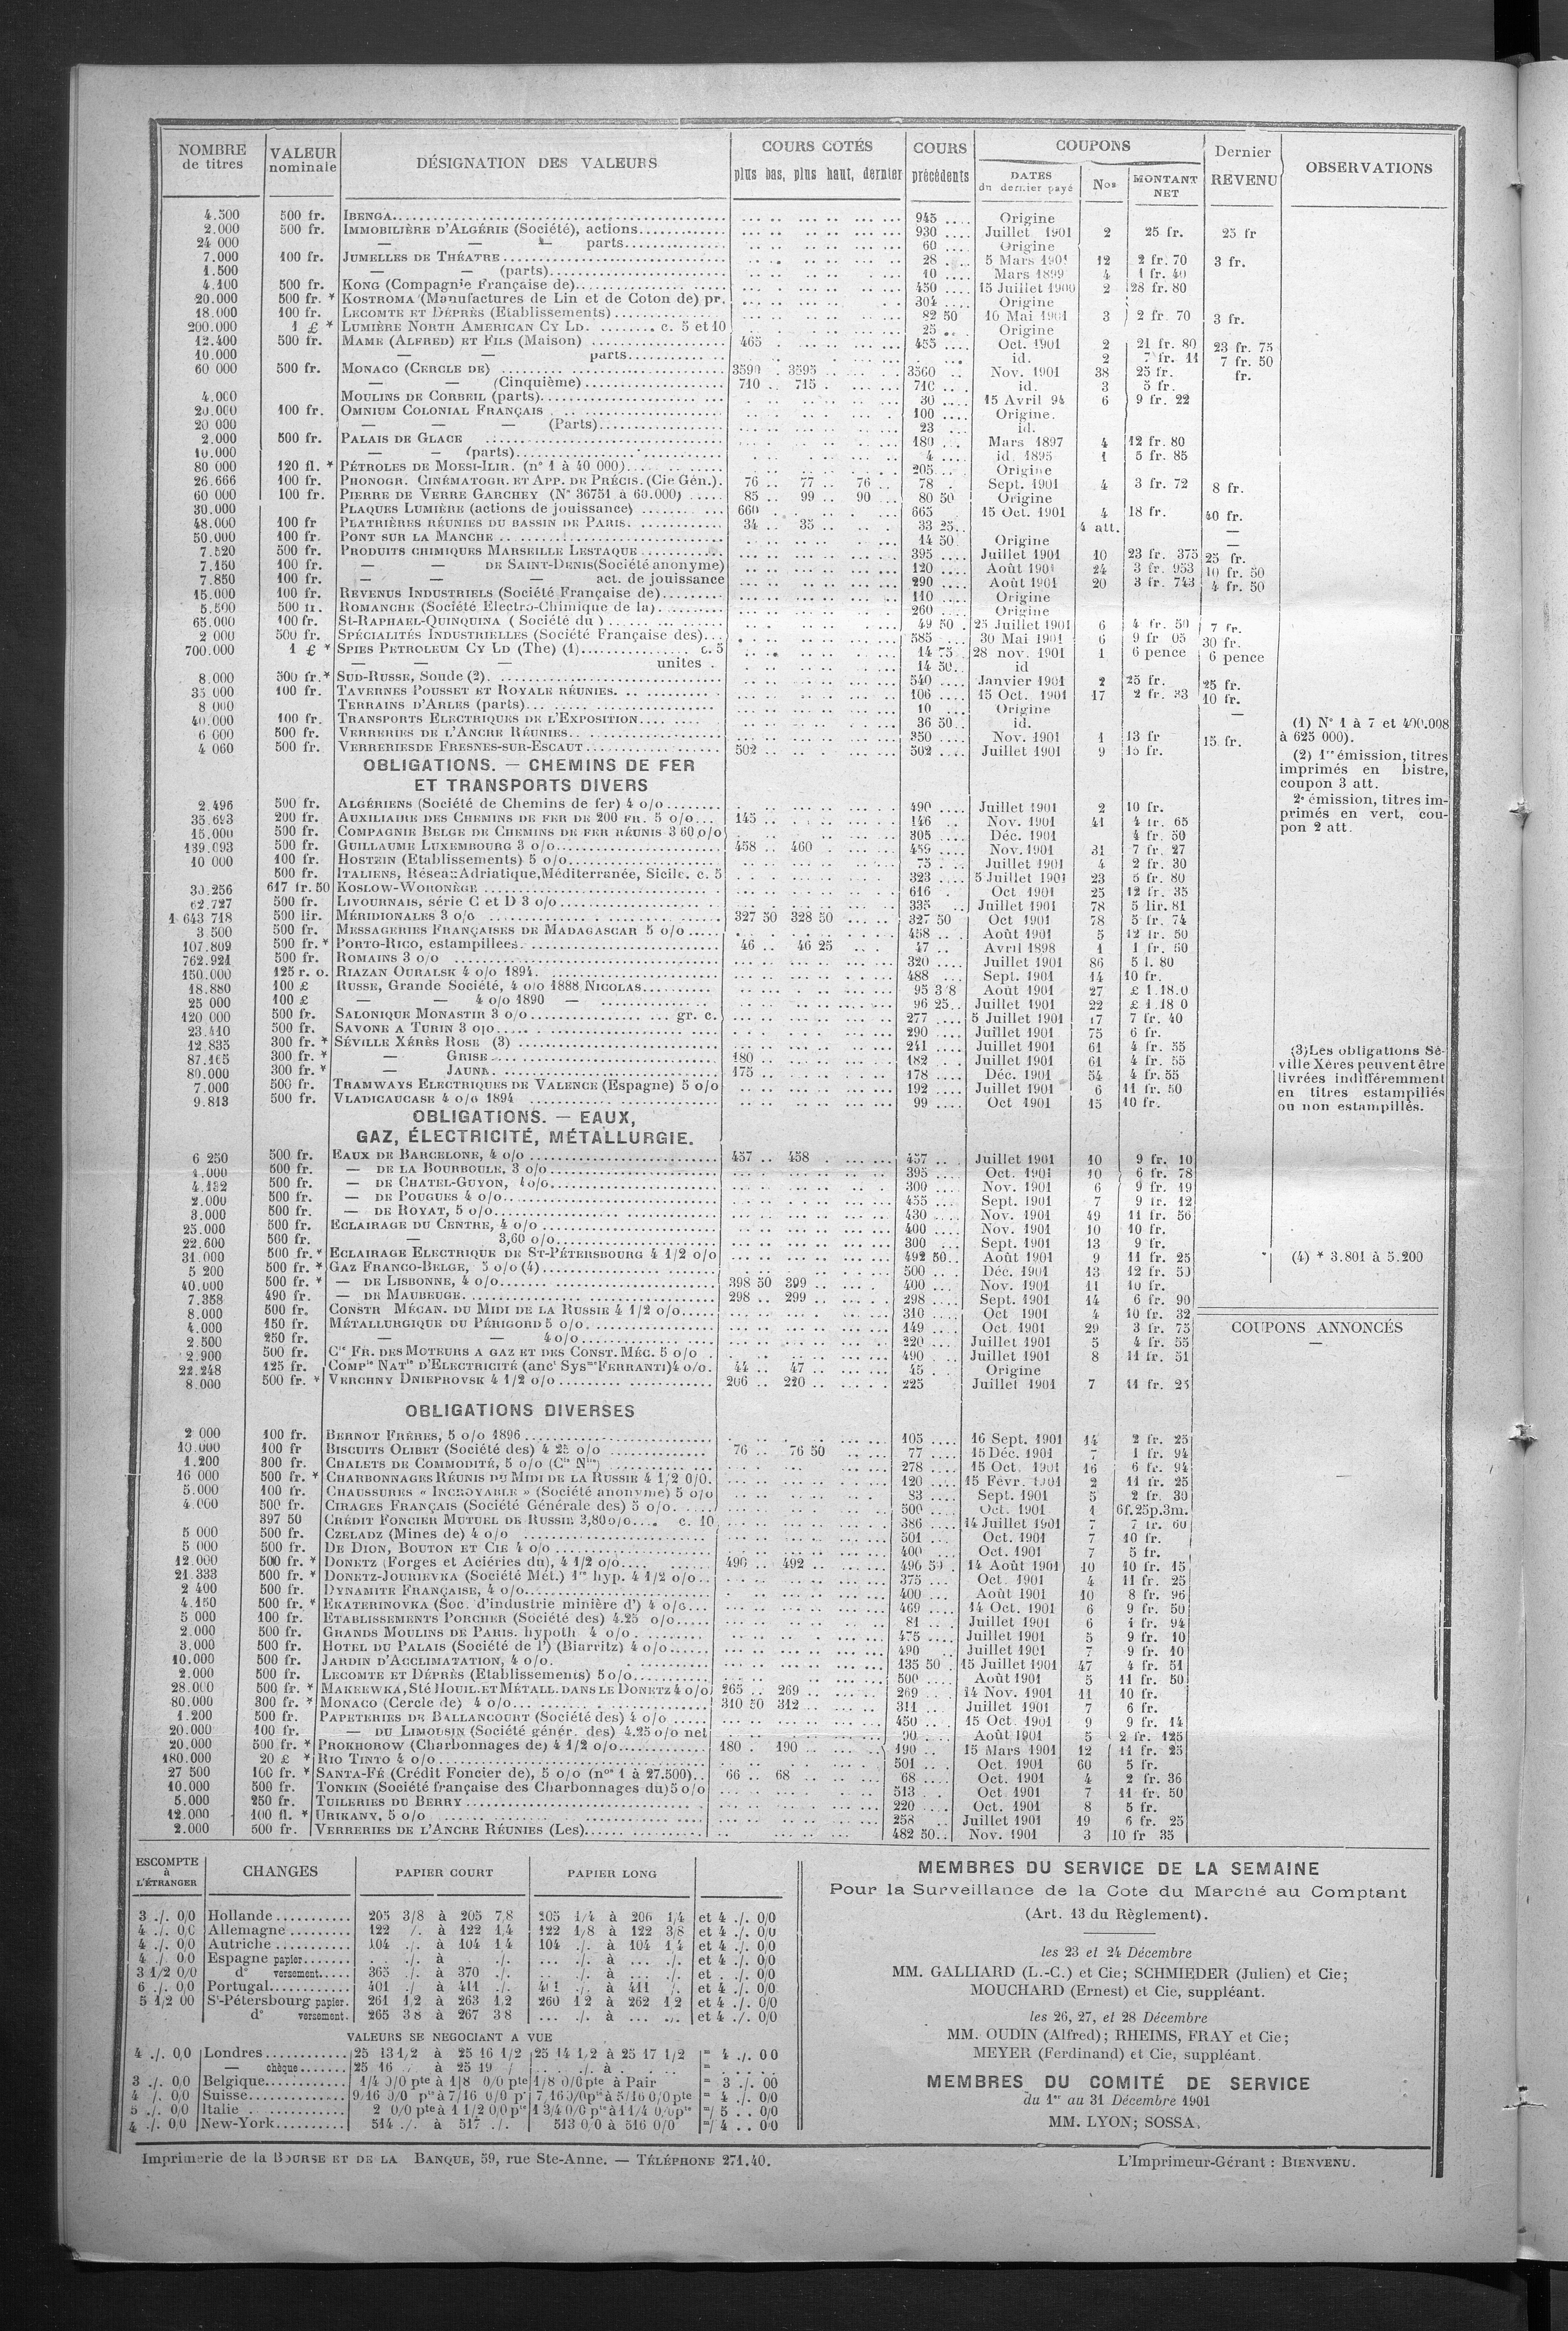 NOMBRE de titres | VALEUR nominale | DÉSIGNATION DES VALEURS | COURS COTÉS plus bas, plus haut, dernier | COURS précédents | COUPONS DATES du dernier payé | Nos | MONTANT NET | Dernier REVENU | OBSERVATIONS
4.500 500 fr. IBENGA 945 Origine
2.000 500 fr. IMMOBILIÈRE D'ALGÉRIE (Société), actions 930 Juillet 1901 2 25 fr. 25 fr
24 000 — — — parts 60 Origine
7.000 100 fr. JUMELLES DE THÉATRE 28 5 Mars 1901 12 2 fr. 70 3 fr.
1.500 — — (parts) 10 Mars 1899 4 1 fr. 40
4.100 500 fr. KONG (Compagnie Française de) 450 15 Juillet 1900 2 28 fr. 80
20.000 500 fr. * KOSTROMA (Manufactures de Lin et de Coton de) pr. 304 Origine
18.000 100 fr. LECOMTE ET DÉPRÈS (Etablissements) 82 50 16 Mai 1901 3 2 fr. 70 3 fr.
200.000 1 £ * LUMIÈRE NORTH AMERICAN CY LD. c. 5 et 10 25 Origine
12.400 500 fr. MAME (ALFRED) ET FILS (Maison) 465 455 Oct. 1901 2 21 fr. 80 23 fr. 75
10.000 — — parts id. 2 7 fr. 11 7 fr. 50
60 000 500 fr. MONACO (CERCLE DE) 3590 3595 3560 Nov. 1901 38 25 fr. fr.
— — (Cinquième) 710 715 710 id. 3 5 fr.
4.000 MOULINS DE CORBEIL (parts) 30 15 Avril 94 6 9 fr. 22
20.000 100 fr. OMNIUM COLONIAL FRANÇAIS 100 Origine.
20 000 — — — (Parts) 23 id.
2.000 500 fr. PALAIS DE GLACE 180 Mars 1897 4 12 fr. 80
10.000 — — (parts) 4 id. 1895 1 5 fr. 85
80 000 120 fl. * PÉTROLES DE MOESI-ILIR. (n° 1 à 40 000) 205 Origine
26.666 100 fr. PHONOGR. CINÉMATOGR. ET APP. DE PRÉCIS. (Cie Gén.) 76 77 76 78 Sept. 1901 4 3 fr. 72 8 fr.
60 000 100 fr. PIERRE DE VERRE GARCHEY (N° 36751 à 60.000) 85 99 90 80 50 Origine
30.000 PLAQUES LUMIÈRE (actions de jouissance) 660 665 15 Oct. 1901 4 18 fr. 40 fr.
48.000 100 fr PLATRIÈRES RÉUNIES DU BASSIN DE PARIS. 34 35 33 25 4 att. —
50.000 100 fr. PONT SUR LA MANCHE 14 50 Origine —
7.520 500 fr. PRODUITS CHIMIQUES MARSEILLE LESTAQUE 395 Juillet 1901 10 23 fr. 375 25 fr.
7.150 100 fr. — — DE SAINT-DENIS (Société anonyme) 120 Août 1901 24 3 fr. 953 10 fr. 50
7.850 100 fr. — — — act. de jouissance 290 Août 1901 20 3 fr. 743 4 fr. 50
15.000 100 fr. REVENUS INDUSTRIELS (Société Française de) 110 Origine
5.500 500 fr. ROMANCHE (Société Electro-Chimique de la) 260 Origine
65.000 100 fr. St-RAPHAEL-QUINQUINA (Société du) 49 50 25 Juillet 1901 6 4 fr. 50 7 fr.
2 000 500 fr. SPÉCIALITÉS INDUSTRIELLES (Société Française des) 585 30 Mai 1901 6 9 fr 05 30 fr.
700.000 1 £ * SPIES PETROLEUM CY LD (The) (1) c. 5 14 75 28 nov. 1901 1 6 pence 6 pence
— — — unites 14 50 id
8.000 500 fr. * SUD-RUSSE, Soude (2) 540 Janvier 1901 2 25 fr. 25 fr.
35 000 100 fr. TAVERNES POUSSET ET ROYALE RÉUNIES. 106 15 Oct. 1901 17 2 fr. 33 10 fr.
8 000 TERRAINS D'ARLES (parts) 10 Origine
40.000 100 fr. TRANSPORTS ELECTRIQUES DE L'EXPOSITION 36 50 id. —
6 000 500 fr. VERRERIES DE L'ANCRE RÉUNIES 350 Nov. 1901 1 13 fr
4 060 500 fr. VERRERIES DE FRESNES-SUR-ESCAUT 502 502 Juillet 1901 9 15 fr. 15 fr.
(1) N° 1 à 7 et 400.008
à 625 000).
(2) 1re émission, titres
imprimés en bistre,
coupon 3 att.
2e émission, titres im-
primés en vert, cou-
pon 2 att.
OBLIGATIONS. — CHEMINS DE FER
ET TRANSPORTS DIVERS
2.496 500 fr. ALGÉRIENS (Société de Chemins de fer) 4 o/o 490 Juillet 1901 2 10 fr.
35.693 200 fr. AUXILIAIRE DES CHEMINS DE FER DE 200 FR. 5 o/o 145 146 Nov. 1901 41 4 fr. 65
15.000 500 fr. COMPAGNIE BELGE DE CHEMINS DE FER RÉUNIS 3 60 o/o 305 Déc. 1901 4 fr. 50
139.093 500 fr. GUILLAUME LUXEMBOURG 3 o/o 458 460 459 Nov. 1901 31 7 fr. 27
10 000 100 fr. HOSTEIN (Etablissements) 5 o/o 75 Juillet 1901 4 2 fr. 30
500 fr. ITALIENS, Réseau Adriatique, Méditerranée, Sicile. c. 5 323 5 Juillet 1901 23 5 fr. 80
30.256 617 fr. 50 KOSLOW-WORONÈGE 616 Oct 1901 25 12 fr. 35
62.727 500 fr. LIVOURNAIS, série C et D 3 o/o 335 Juillet 1901 78 5 lir. 81
1 643 718 500 lir. MÉRIDIONALES 3 o/o 327 50 328 50 327 50 Oct 1901 78 5 fr. 74
3 500 500 fr. MESSAGERIES FRANÇAISES DE MADAGASCAR 5 o/o 458 Août 1901 5 12 fr. 50
107.809 500 fr. * PORTO-RICO, estampillees. 46 46 25 47 Avril 1898 1 1 fr. 50
762.921 500 fr. ROMAINS 3 o/o 320 Juillet 1901 86 5 l. 80
150.000 125 r. o. RIAZAN OURALSK 4 o/o 1894. 488 Sept. 1901 14 10 fr.
18.880 100 £ RUSSE, Grande Société, 4 o/o 1888 NICOLAS 95 3/8 Août 1901 27 £ 1.18.0
25 000 100 £ — — 4 o/o 1890 — 96 25 Juillet 1901 22 £ 1.18 0
120 000 500 fr. SALONIQUE MONASTIR 3 o/o gr. c. 277 5 Juillet 1901 17 7 fr. 40
23.410 500 fr. SAVONE A TURIN 3 o/o 290 Juillet 1901 75 6 fr.
12.835 300 fr. * SÉVILLE XÉRÈS ROSE (3) 241 Juillet 1901 61 4 fr. 55
87.165 300 fr. * — GRISE 180 182 Juillet 1901 61 4 fr. 55
80.000 300 fr. * — JAUNE 175 178 Déc. 1901 54 4 fr. 55
7.000 500 fr. TRAMWAYS ELECTRIQUES DE VALENCE (Espagne) 5 o/o 192 Juillet 1901 6 11 fr. 50
9.813 500 fr. VLADICAUCASE 4 o/o 1894 99 Oct 1901 15 10 fr.
(3) Les obligations Sé-
ville Xérès peuvent être
livrées indifféremment
en titres estampillés
ou non estampillés.
OBLIGATIONS. — EAUX,
GAZ, ÉLECTRICITÉ, MÉTALLURGIE.
6 250 500 fr. EAUX DE BARCELONE, 4 o/o 457 458 457 Juillet 1901 10 9 fr. 10
1.000 500 fr. — DE LA BOURBOULE, 3 o/o 395 Oct. 1901 10 6 fr. 78
4.132 500 fr. — DE CHATEL-GUYON, 4 o/o 300 Nov. 1901 6 9 fr. 19
2.000 500 fr. — DE POUGUES 4 o/o 455 Sept. 1901 7 9 fr. 12
3.000 500 fr. — DE ROYAT, 5 o/o 430 Nov. 1901 49 11 fr. 56
25.000 500 fr. ECLAIRAGE DU CENTRE, 4 o/o 400 Nov. 1901 10 10 fr.
22.600 500 fr. — 3,60 o/o 300 Sept. 1901 13 9 fr.
31.000 500 fr. * ECLAIRAGE ELECTRIQUE DE ST-PÉTERSBOURG 4 1/2 o/o 492 50 Août 1901 9 11 fr. 25
5 200 500 fr. * GAZ FRANCO-BELGE, 5 o/o (4) 500 Déc. 1901 13 12 fr. 50 (4) * 3.801 à 5.200
40.000 500 fr. * — DE LISBONNE, 4 o/o 398 50 399 400 Nov. 1901 11 10 fr.
7.358 490 fr. — DE MAUBEUGE 298 299 298 Sept. 1901 14 6 fr. 90
8.000 500 fr. CONSTR MÉCAN. DU MIDI DE LA RUSSIE 4 1/2 o/o 310 Oct 1901 4 10 fr. 32
4.000 150 fr. MÉTALLURGIQUE DU PÉRIGORD 5 o/o 149 Oct. 1901 29 3 fr. 75
2.500 250 fr. — — 4 o/o 220 Juillet 1901 5 4 fr. 55
2.900 500 fr. Cie FR. DES MOTEURS A GAZ ET DES CONST. MÉC. 5 o/o 490 Juillet 1901 8 11 fr. 51
22.248 125 fr. COMPie NATle D'ELECTRICITÉ (anct Sysme FERRANTI) 4 o/o. 44 47 45 Origine
8.000 500 fr. * VERCHNY DNIEPROVSK 4 1/2 o/o 206 220 225 Juillet 1901 7 11 fr. 25
COUPONS ANNONCÉS
OBLIGATIONS DIVERSES
2 000 100 fr. BERNOT FRÈRES, 5 o/o 1896 105 16 Sept. 1901 14 2 fr. 25
10.000 100 fr BISCUITS OLIBET (Société des) 4 25 o/o 76 76 50 77 15 Déc. 1901 7 1 fr. 94
1.200 300 fr. CHALETS DE COMMODITÉ, 5 o/o 278 15 Oct. 1901 16 6 fr. 94
16 000 500 fr. * CHARBONNAGES RÉUNIS DU MIDI DE LA RUSSIE 4 1/2 0/0. 120 15 Févr. 1901 2 11 fr. 25
5.000 100 fr. CHAUSSURES « INCROYABLE » (Société anonyme) 5 o/o 83 Sept. 1901 5 2 fr. 30
4.000 500 fr. CIRAGES FRANÇAIS (Société Générale des) 5 o/o 500 Oct. 1901 1 6f.25p.3m.
397 50 CRÉDIT FONCIER MUTUEL DE RUSSIE 3,80 o/o c. 10 386 14 Juillet 1901 7 7 fr. 60
5 000 500 fr. CZELADZ (Mines de) 4 o/o 501 Oct. 1901 7 10 fr.
5 000 500 fr. DE DION, BOUTON ET CIE 4 o/o 400 Oct. 1901 7 5 fr.
12.000 500 fr. * DONETZ (Forges et Aciéries du), 4 1/2 o/o 490 492 490 50 14 Août 1901 10 10 fr. 15
21.333 500 fr. * DONETZ-JOURIEVKA (Société Mét.) 1re hyp. 4 1/2 o/o 375 Oct. 1901 4 11 fr. 25
2 400 500 fr. DYNAMITE FRANÇAISE, 4 o/o 400 Août 1901 10 8 fr. 96
4.150 500 fr. * EKATERINOVKA (Soc. d'industrie minière d') 4 o/o 469 14 Oct. 1901 6 9 fr. 50
5 000 100 fr. ETABLISSEMENTS PORCHER (Société des) 4.25 o/o 81 Juillet 1901 6 1 fr. 94
2.000 500 fr. GRANDS MOULINS DE PARIS. hypoth 4 o/o 475 Juillet 1901 5 9 fr. 10
3.000 500 fr. HOTEL DU PALAIS (Société de l') (Biarritz) 4 o/o 490 Juillet 1901 7 9 fr. 10
10.000 500 fr. JARDIN D'ACCLIMATATION, 4 o/o. 135 50 15 Juillet 1901 47 4 fr. 51
2.000 500 fr. LECOMTE ET DÉPRÈS (Etablissements) 5 o/o 500 Août 1901 5 11 fr. 50
28.000 500 fr. * MAKEEWKA, Sté HOUIL. ET MÉTALL. DANS LE DONETZ 4 o/o 265 269 269 14 Nov. 1901 11 10 fr.
80.000 300 fr. * MONACO (Cercle de) 4 o/o 310 50 312 311 Juillet 1901 7 6 fr.
1.200 500 fr. PAPETERIES DE BALLANCOURT (Société des) 4 o/o 450 15 Oct. 1901 9 9 fr. 14
20.000 100 fr. — DU LIMOUSIN (Société génér. des) 4.25 o/o net 90 Août 1901 5 2 fr. 125
20.000 500 fr. * PROKHOROW (Charbonnages de) 4 1/2 o/o 180 190 190 15 Mars 1901 12 11 fr. 25
180.000 20 £ * RIO TINTO 4 o/o 501 Oct. 1901 60 5 fr.
27 500 100 fr. * SANTA-FÉ (Crédit Foncier de), 5 o/o (nos 1 à 27.500) 66 68 68 Oct. 1901 4 2 fr. 36
10.000 500 fr. TONKIN (Société française des Charbonnages du) 5 o/o 513 Oct 1901 7 11 fr. 50
5.000 250 fr. TUILERIES DU BERRY 220 Oct. 1901 8 5 fr.
12.000 100 fl. * URIKANY, 5 o/o 258 Juillet 1901 19 6 fr. 25
2.000 500 fr. VERRERIES DE L'ANCRE RÉUNIES (Les) 482 50 Nov. 1901 3 10 fr 35
ESCOMPTE à L'ÉTRANGER | CHANGES | PAPIER COURT | PAPIER LONG
3 ./. 0/0 Hollande 205 3/8 à 205 7/8 205 1/4 à 206 1/4 et 4 ./. 0/0
4 ./. 0/0 Allemagne 122 /. à 122 1/4 122 1/8 à 122 3/8 et 4 ./. 0/0
4 ./. 0/0 Autriche 104 ./. à 104 1/4 104 ./. à 104 1/4 et 4 ./. 0/0
4 ./. 0/0 Espagne papier ./. à ./. ./. à ./. et 4 ./. 0/0
3 1/2 0/0 d° versement 365 ./. à 370 ./. ./. à ./. et ./. 0/0
6 ./. 0/0 Portugal 401 ./. à 411 ./. 401 ./. à 411 ./. et 4 ./. 0/0
5 1/2 00 St-Pétersbourg papier. 261 1/2 à 263 1/2 260 1/2 à 262 1/2 et 4 ./. 0/0
d° versement. 265 3/8 à 267 3/8 ./. à ./. et 4 ./. 0/0
VALEURS SE NEGOCIANT A VUE
4 ./. 0/0 Londres 25 13 1/2 à 25 16 1/2 25 14 1/2 à 25 17 1/2 4 ./. 00
— chèque 25 16 à 25 19 ./. à
3 ./. 0/0 Belgique 1/4 0/0 pte à 1/8 0/0 pte 1/8 0/0 pte à Pair 3 ./. 00
4 ./. 0/0 Suisse 9/16 0/0 pte à 7/16 0/0 pte 7/16 0/0 pte à 5/16 0/0 pte 4 ./. 0/0
5 ./. 0/0 Italie 2 0/0 pte à 1 1/2 0/0 pte 1 3/4 0/0 pte à 1 1/4 0/0 pte 5 . . 0/0
4 ./. 0/0 New-York 514 ./. à 517 ./. 513 0/0 à 516 0/0 4 . . 0/0
MEMBRES DU SERVICE DE LA SEMAINE
Pour la Surveillance de la Cote du Marché au Comptant
(Art. 13 du Règlement).
les 23 et 24 Décembre
MM. GALLIARD (L.-C.) et Cie; SCHMIEDER (Julien) et Cie;
MOUCHARD (Ernest) et Cie, suppléant.
les 26, 27, et 28 Décembre
MM. OUDIN (Alfred); RHEIMS, FRAY et Cie;
MEYER (Ferdinand) et Cie, suppléant.
MEMBRES DU COMITÉ DE SERVICE
du 1er au 31 Décembre 1901
MM. LYON; SOSSA.
Imprimerie de la BOURSE ET DE LA BANQUE, 59, rue Ste-Anne. — TÉLÉPHONE 271.40.
L'Imprimeur-Gérant : BIENVENU.